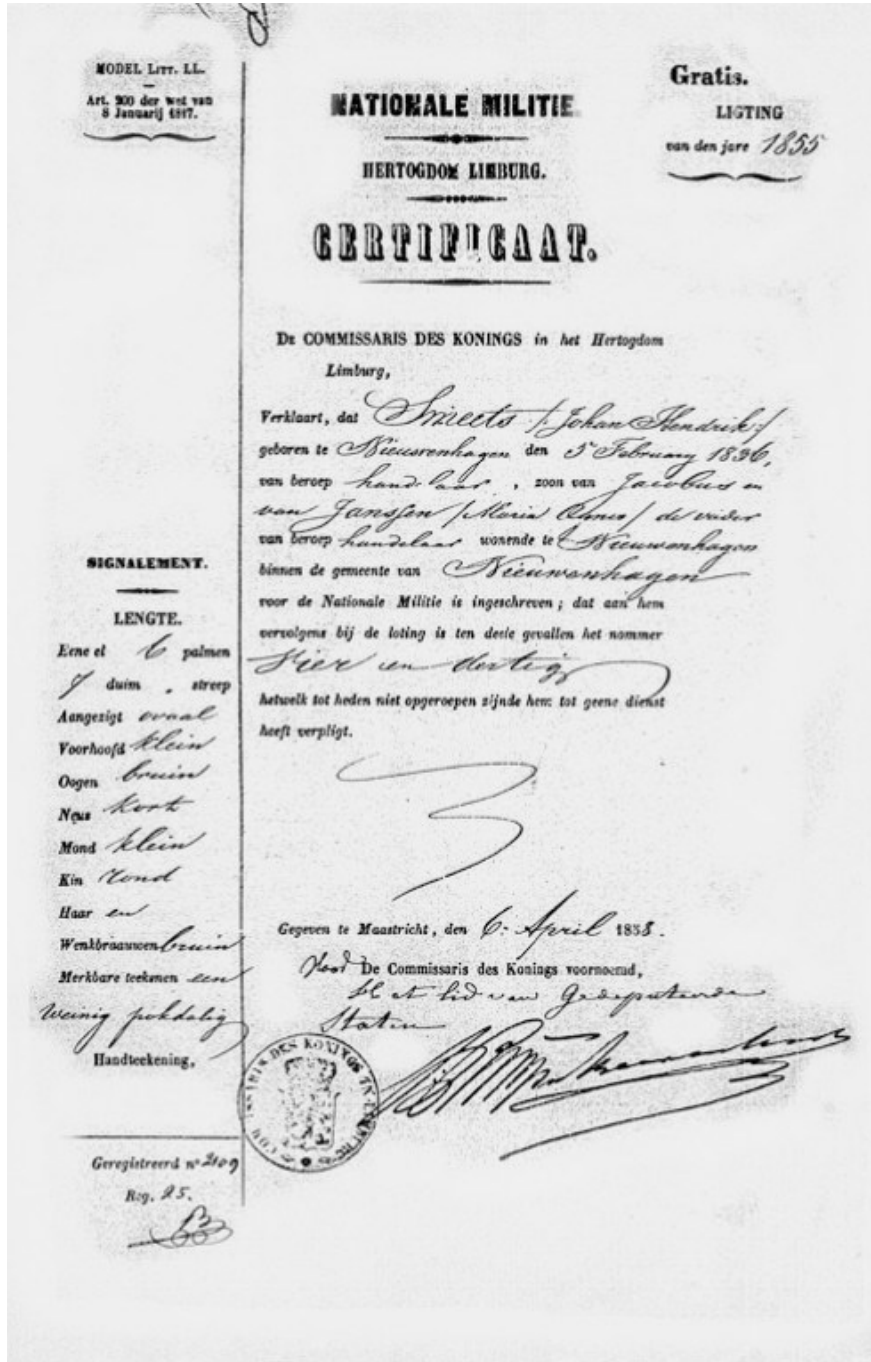 MODEL LITT. LL.
Art. 200 der wet van
8 Januarij 1817.
Gratis.
LIGTING
van den jare 1855
NATIONALE MILITIE.
HERTOGDOM LIMBURG.
CERTIFICAAT.
DE COMMISSARIS DES KONINGS in het Hertogdom
Limburg,
Verklaart, dat Smeets /: Johan Hendrik :/
geboren te Nieuwenhagen den 5n February 1836,
van beroep handelaar, zoon van Jacobus en
van Janssen / Maria Agnes / de vader
van beroep handelaar wonende te Nieuwenhagen
binnen de gemeente van Nieuwenhagen
voor de Nationale Militie is ingeschreven; dat aan hem
vervolgens bij de loting is ten deele gevallen het nommer
Vier en dertig
hetwelk tot heden niet opgeroepen zijnde hem tot geene dienst
heeft verpligt.
Gegeven te Maastricht, den 6: April 1858.
Voor De Commissaris des Konings voornoemd,
het lid van Gedeputeerde
Staten
SIGNALEMENT.
LENGTE.
Eene el 6 palmen
7 duim „ streep
Aangezigt ovaal
Voorhoofd klein
Oogen bruin
Neus Kort
Mond klein
Kin rond
Haar en
Wenkbraauwen bruin
Merkbare teekenen een
weinig pokdalig
Handteekening,
COMMISSARIS DES KONINGS IN LIMBURG
Geregistreerd no 2109
Reg. 25.